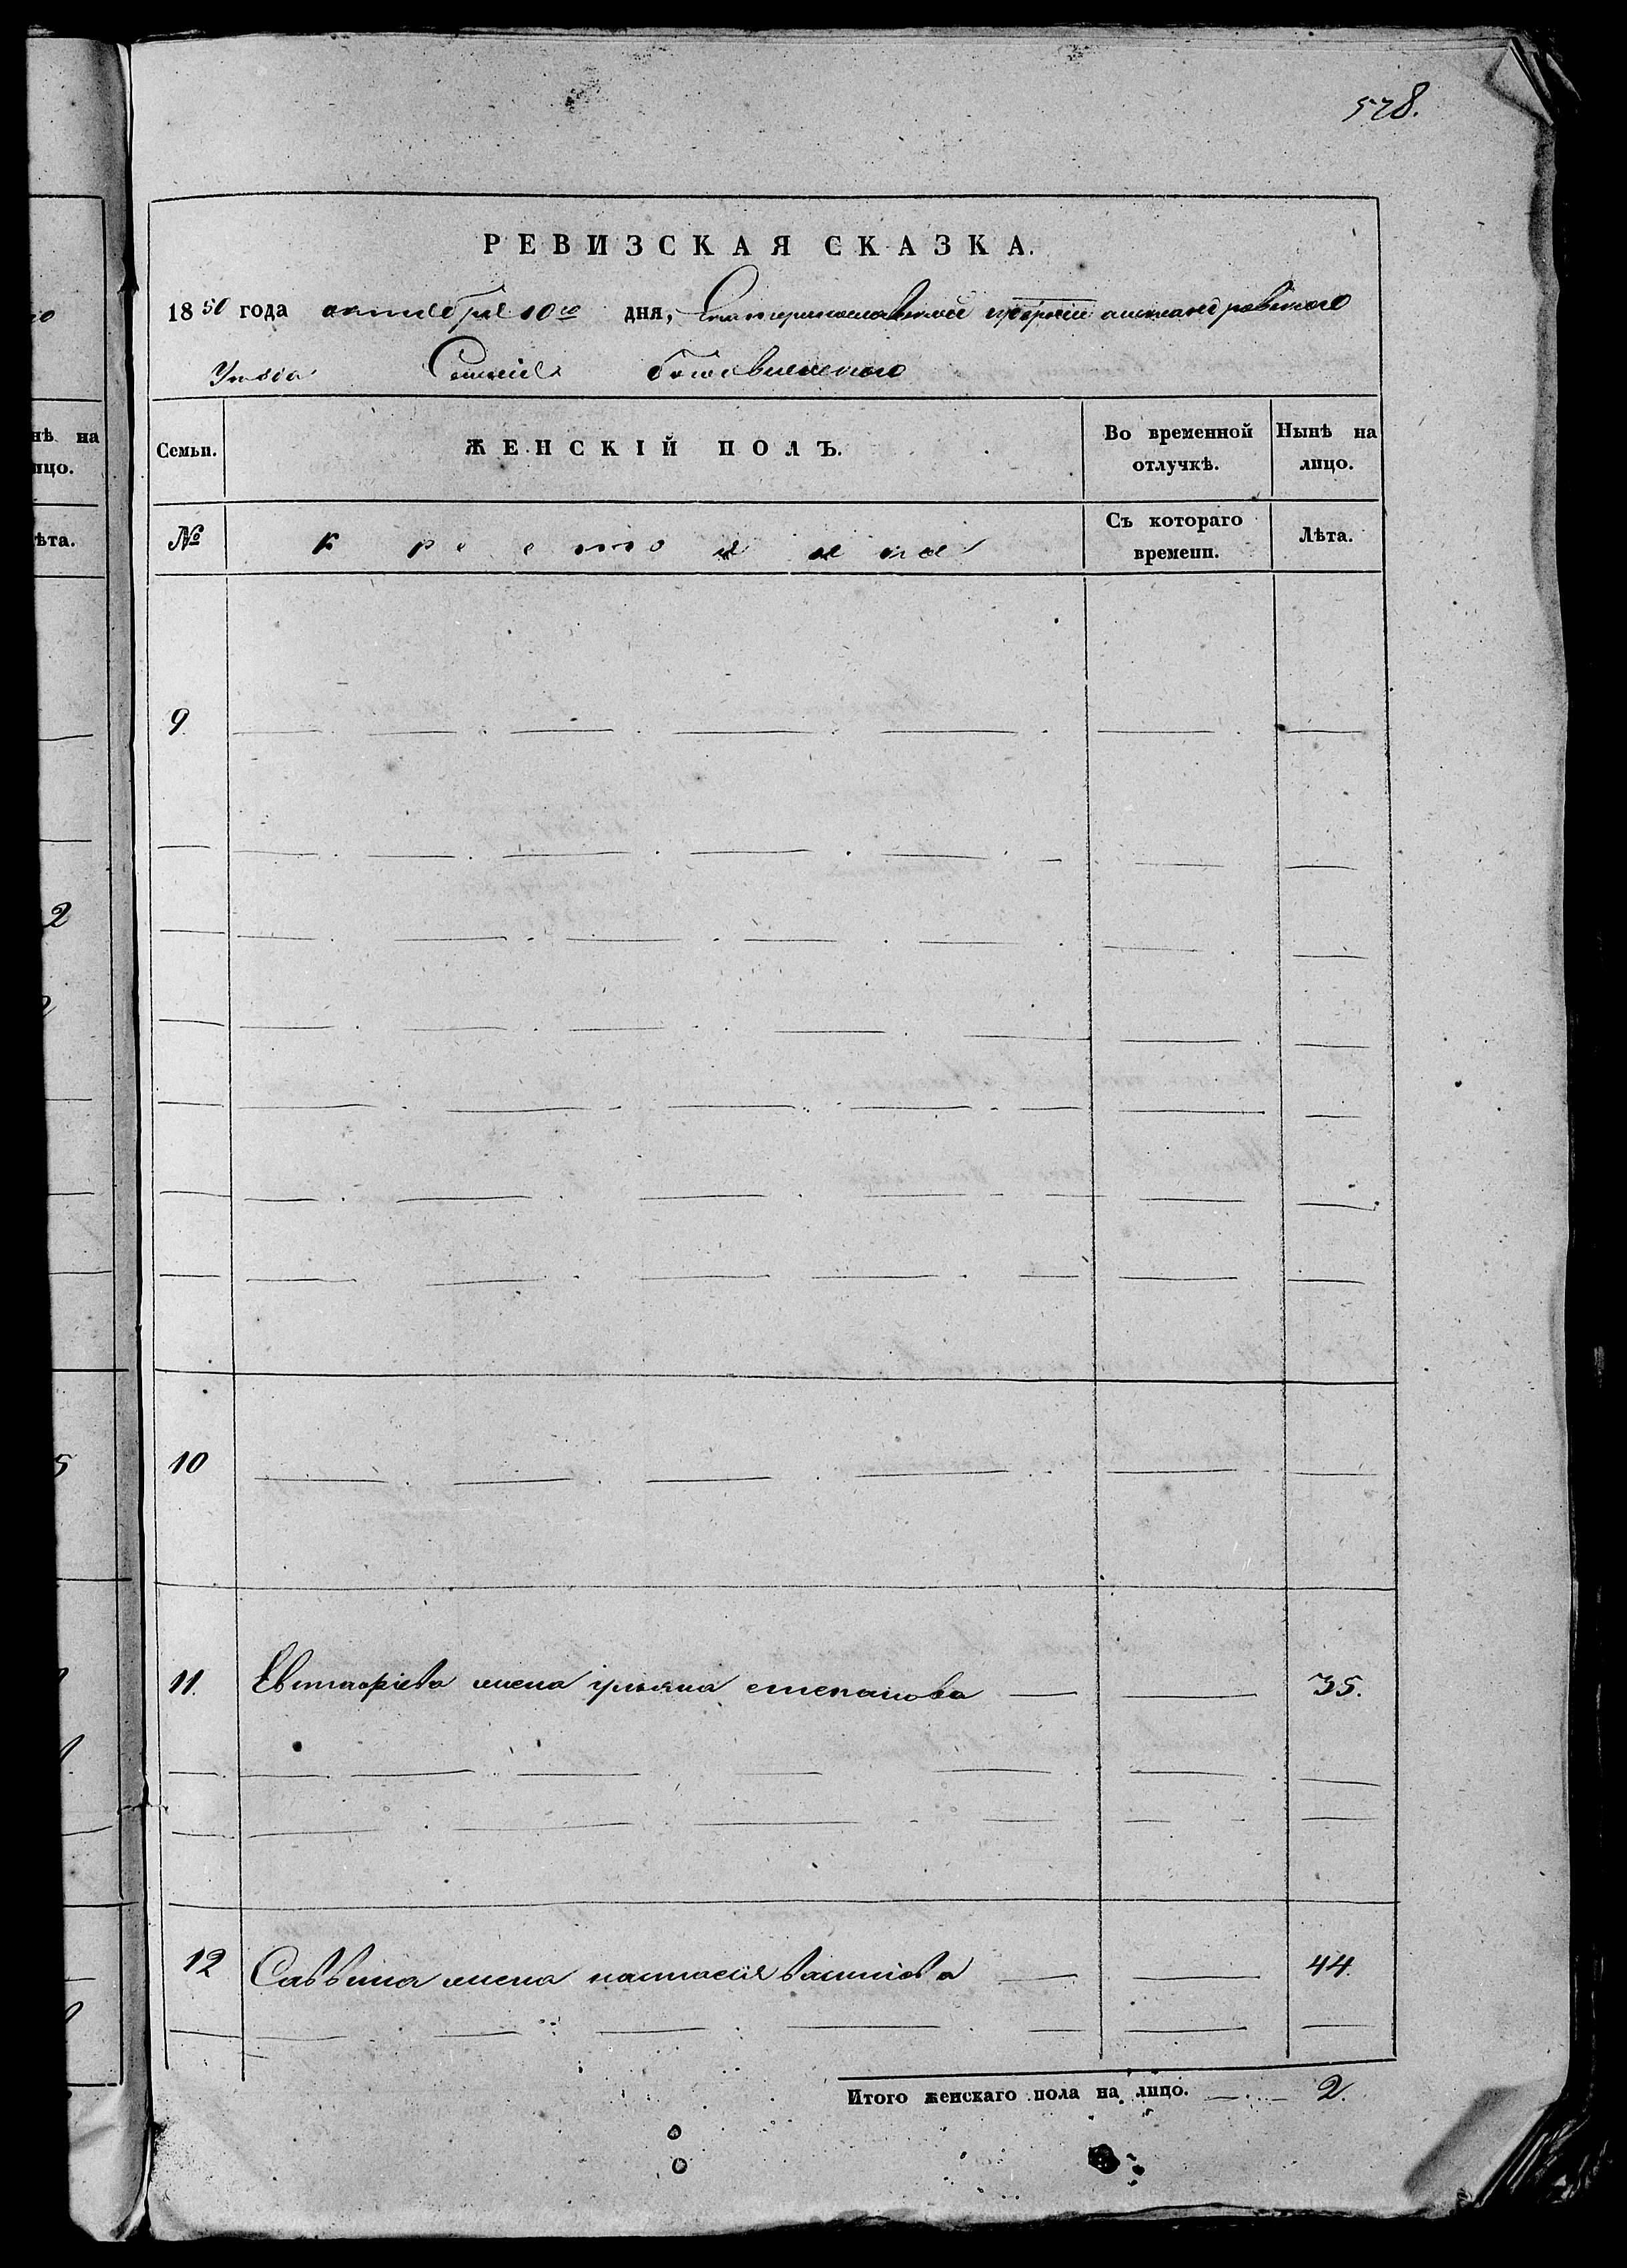 578.
РЕВИЗСКАЯ СКАЗКА.
1850 года октября 10го дня, Екатеринославской губернии александровского
Уезда Селения богоявленского
Семьи. ЖЕНСКІЙ ПОЛЪ. Во временной отлучкѣ. Нынѣ на лицо.
№ крестьянка Съ котораго времени. Лѣта.
9
10
11. жена ульяна степанова 35.
12 Саввина жена настасія 44.
Итого женскаго пола на лицо. 2.
нѣ на
ицо.
ѣта.
2
5